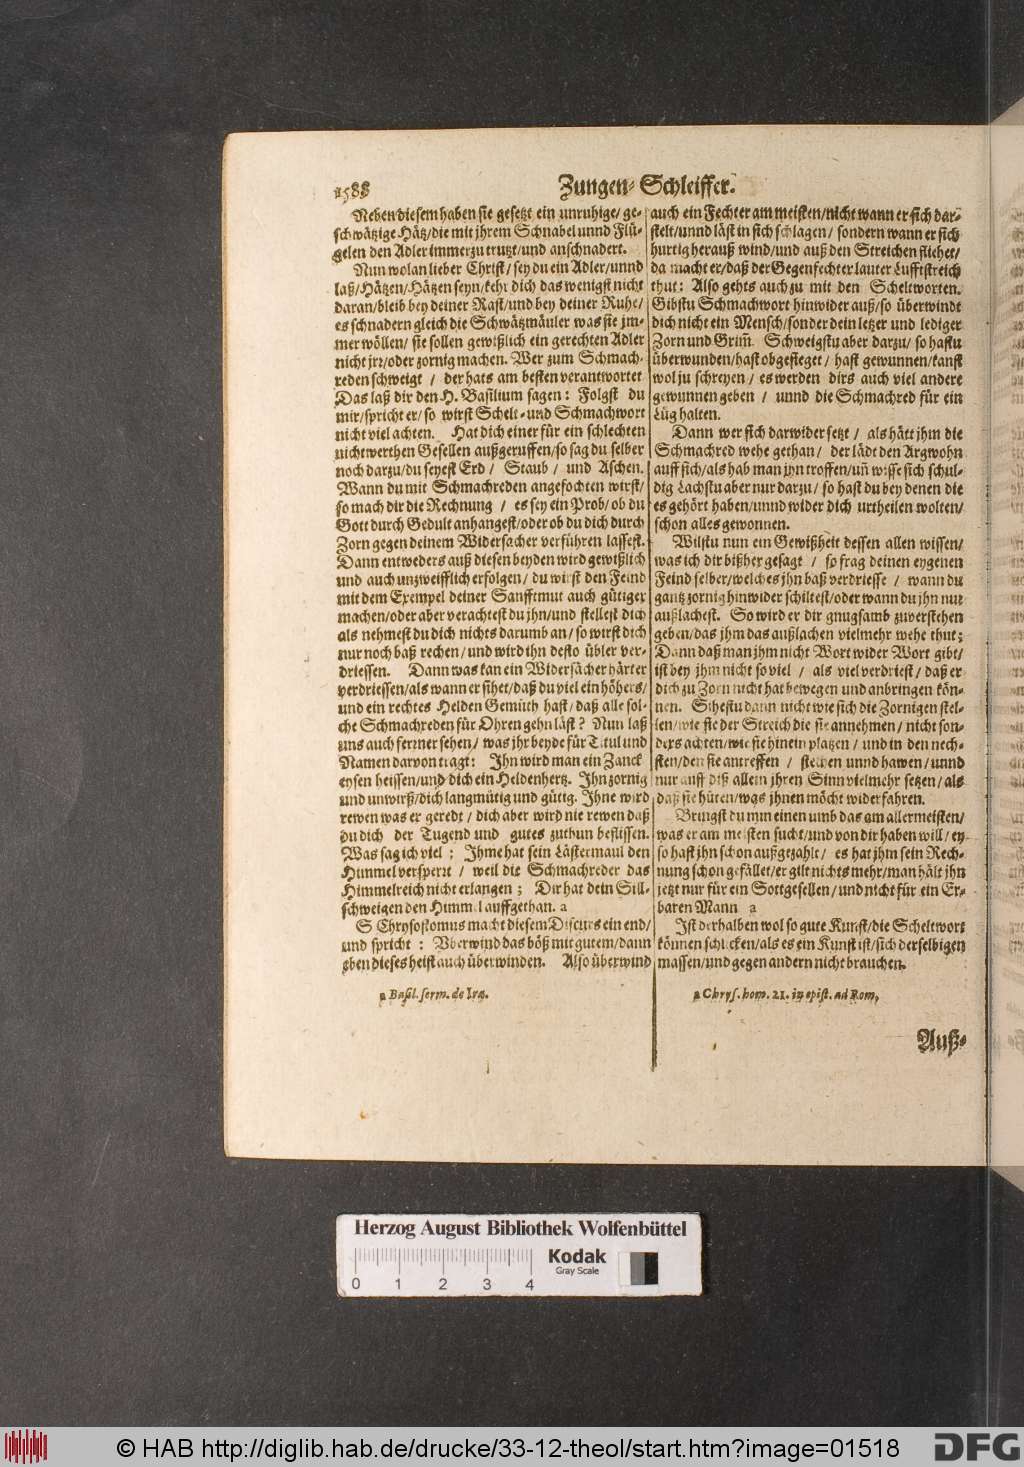 1588
Zungen-Schleiffer.
Neben diesem haben sie gesetzt ein unruhige/ ge-
schwätzige Hätz/die mit jhrem Schnabel unnd Flü-
gelen den Adler immerzu trutzt/und anschnadert.
Nun wolan lieber Christ/ sey du ein Adler/unnd
laß/Hätzen/Hätzen seyn/kehr dich das wenigst nicht
daran/bleib bey deiner Rast/und bey deiner Ruhe/
es schnadern gleich die Schwätzmäuler was sie jm-
mer wöllen/ sie sollen gewißlich ein gerechten Adler
nicht jrz/oder zornig machen. Wer zum Schmach-
reden schweigt / der hats am besten verantwortet
Das laß dir den H. Basilium sagen: Folgst du
mir/spricht er/so wirst Schelt- und Schmachwort
nicht viel achten. Hat dich einer für ein schlechten
nichtwerthen Gesellen außgeruffen/so sag du selber
noch darzu/du seyest Erd / Staub / und Aschen.
Wann du mit Schmachreden angefochten wirst/
so mach dir die Rechnung / es sey ein Prob/ob du
Gott durch Gedult anhangest/oder ob du dich durch
Zorn gegen deinem Widersacher verführen lassest.
Dann entweders auß diesen beyden wird gewißlich
und auch unzweifflich erfolgen/ du wirst den Feind
mit dem Exempel deiner Sanfftmut auch gütiger
machen/oder aber verachtest du jhn/und stellest dich
als nehmest du dich nichts darumb an/ so wirst dich
nur noch baß rechen/ und wird ihn desto übler ver-
driessen. Dann was kan ein Widersächer härter
verdriessen/als wann er sihet/daß du viel ein höhers/
und ein rechtes Helden Gemüth hast/ daß alle sol-
che Schmachreden für Ohren gehn läst? Nun laß
uns auch ferrner sehen/ was jhr beyde für Titul und
Namen darvon tragt: Ihn wird man ein Zanck
eysen heissen/und dich ein Heldenhertz. Ihn zornig
und unwirß/dich langmütig und gütig. Ihne wird
rewen was er geredt/ dich aber wird nie rewen daß
du dich der Tugend und gutes zuthun beflissen.
Was sag ich viel; Ihme hat sein Lästermaul den
Himmel versperrt / weil die Schmachreder das
Himmelreich nicht erlangen; Dir hat dein Still-
schweigen den Himmel auffgethan. a
S Chrysostomus macht diesem Discurs ein end/
und spricht: Überwind das böß mit gutem/dann
eben dieses heist auch überwinden. Also überwind
a Basil. serm. de Ira.
auch ein Fechter am meisten/nicht wann er sich dar-
stelt/unnd läst in sich schlagen/ sondern wann er sich
hurtig herauß wind/und auß den Streichen fliehet/
da macht er/daß der Gegenfechter lauter Lufftstreich
thut: Also gehts auch zu mit den Scheltworten.
Gibstu Schmachwort hinwider auß/so überwindt
dich nicht ein Mensch/sonder dein letzer und lediger
Zorn und Grim̃. Schweigstu aber darzu/ so hastu
überwunden/hast obgesieget/ hast gewunnen/kanst
wol ju schreyen/ es werden dirs auch viel andere
gewunnen geben / unnd die Schmachred für ein
Lüg halten.
Dann wer sich darwider setzt/ als hätt jhm die
Schmachred wehe gethan/ der lädt den Argwohn
auff sich/als hab man jhn troffen/uñ wisse sich schul-
dig Lachstu aber nur darzu/ so hast du bey denen die
es gehört haben/unnd wider dich urtheilen wolten/
schon alles gewonnen.
Wilstu nun ein Gewißheit dessen allen wissen/
was ich dir bißher gesagt / so frag deinen eygenen
Feind selber/welches jhn baß verdriesse / wann du
gantz zornig hinwider schiltest/oder wann du jhn nur
außlachest. So wird er dir gnugsamb zuverstehen
geben/das jhm das außlachen vielmehr wehe thut;
Dann daß man jhm nicht Wort wider Wort gibt/
ist bey jhm nicht so viel / als viel verdriest/ daß er
dich zu Zorn nicht hat bewegen und anbringen kön-
nen. Sihestu dann nicht wie sich die Zornigen stel-
len/wie sie der Streich die sie annehmen/ nicht son-
ders achten/wie sie hinein platzen/ und in den nech-
sten/den sie antreffen/ stechen unnd hawen/unnd
nur auff diß allein jhren Sinn vielmehr setzen/als
daß sie hüten/was jhnen möcht widerfahren.
Bringst du nun einen umb das am allermeisten/
was er am meisten sucht/und von dir haben will/ ey
so hast jhn schon außgezahlt/ es hat jhm sein Rech-
nung schon gefället/er gilt nichts mehr/man hält jhn
jetzt nur für ein Sottgesellen/und nicht für ein Er-
baren Mann a
Ist derhalben wol so gute Kunst/die Scheltwort
können schlecken/als es ein Kunst ist/sich derselbigen
massen/und gegen andern nicht brauchen.
a Chrys. hom. 21. in epist. ad Rom,
Auß-
Herzog August Bibliothek Wolfenbüttel
Kodak
Gray Scale
0 1 2 3 4
© HAB http://diglib.hab.de/drucke/33-12-theol/start.htm?image=01518
DFG